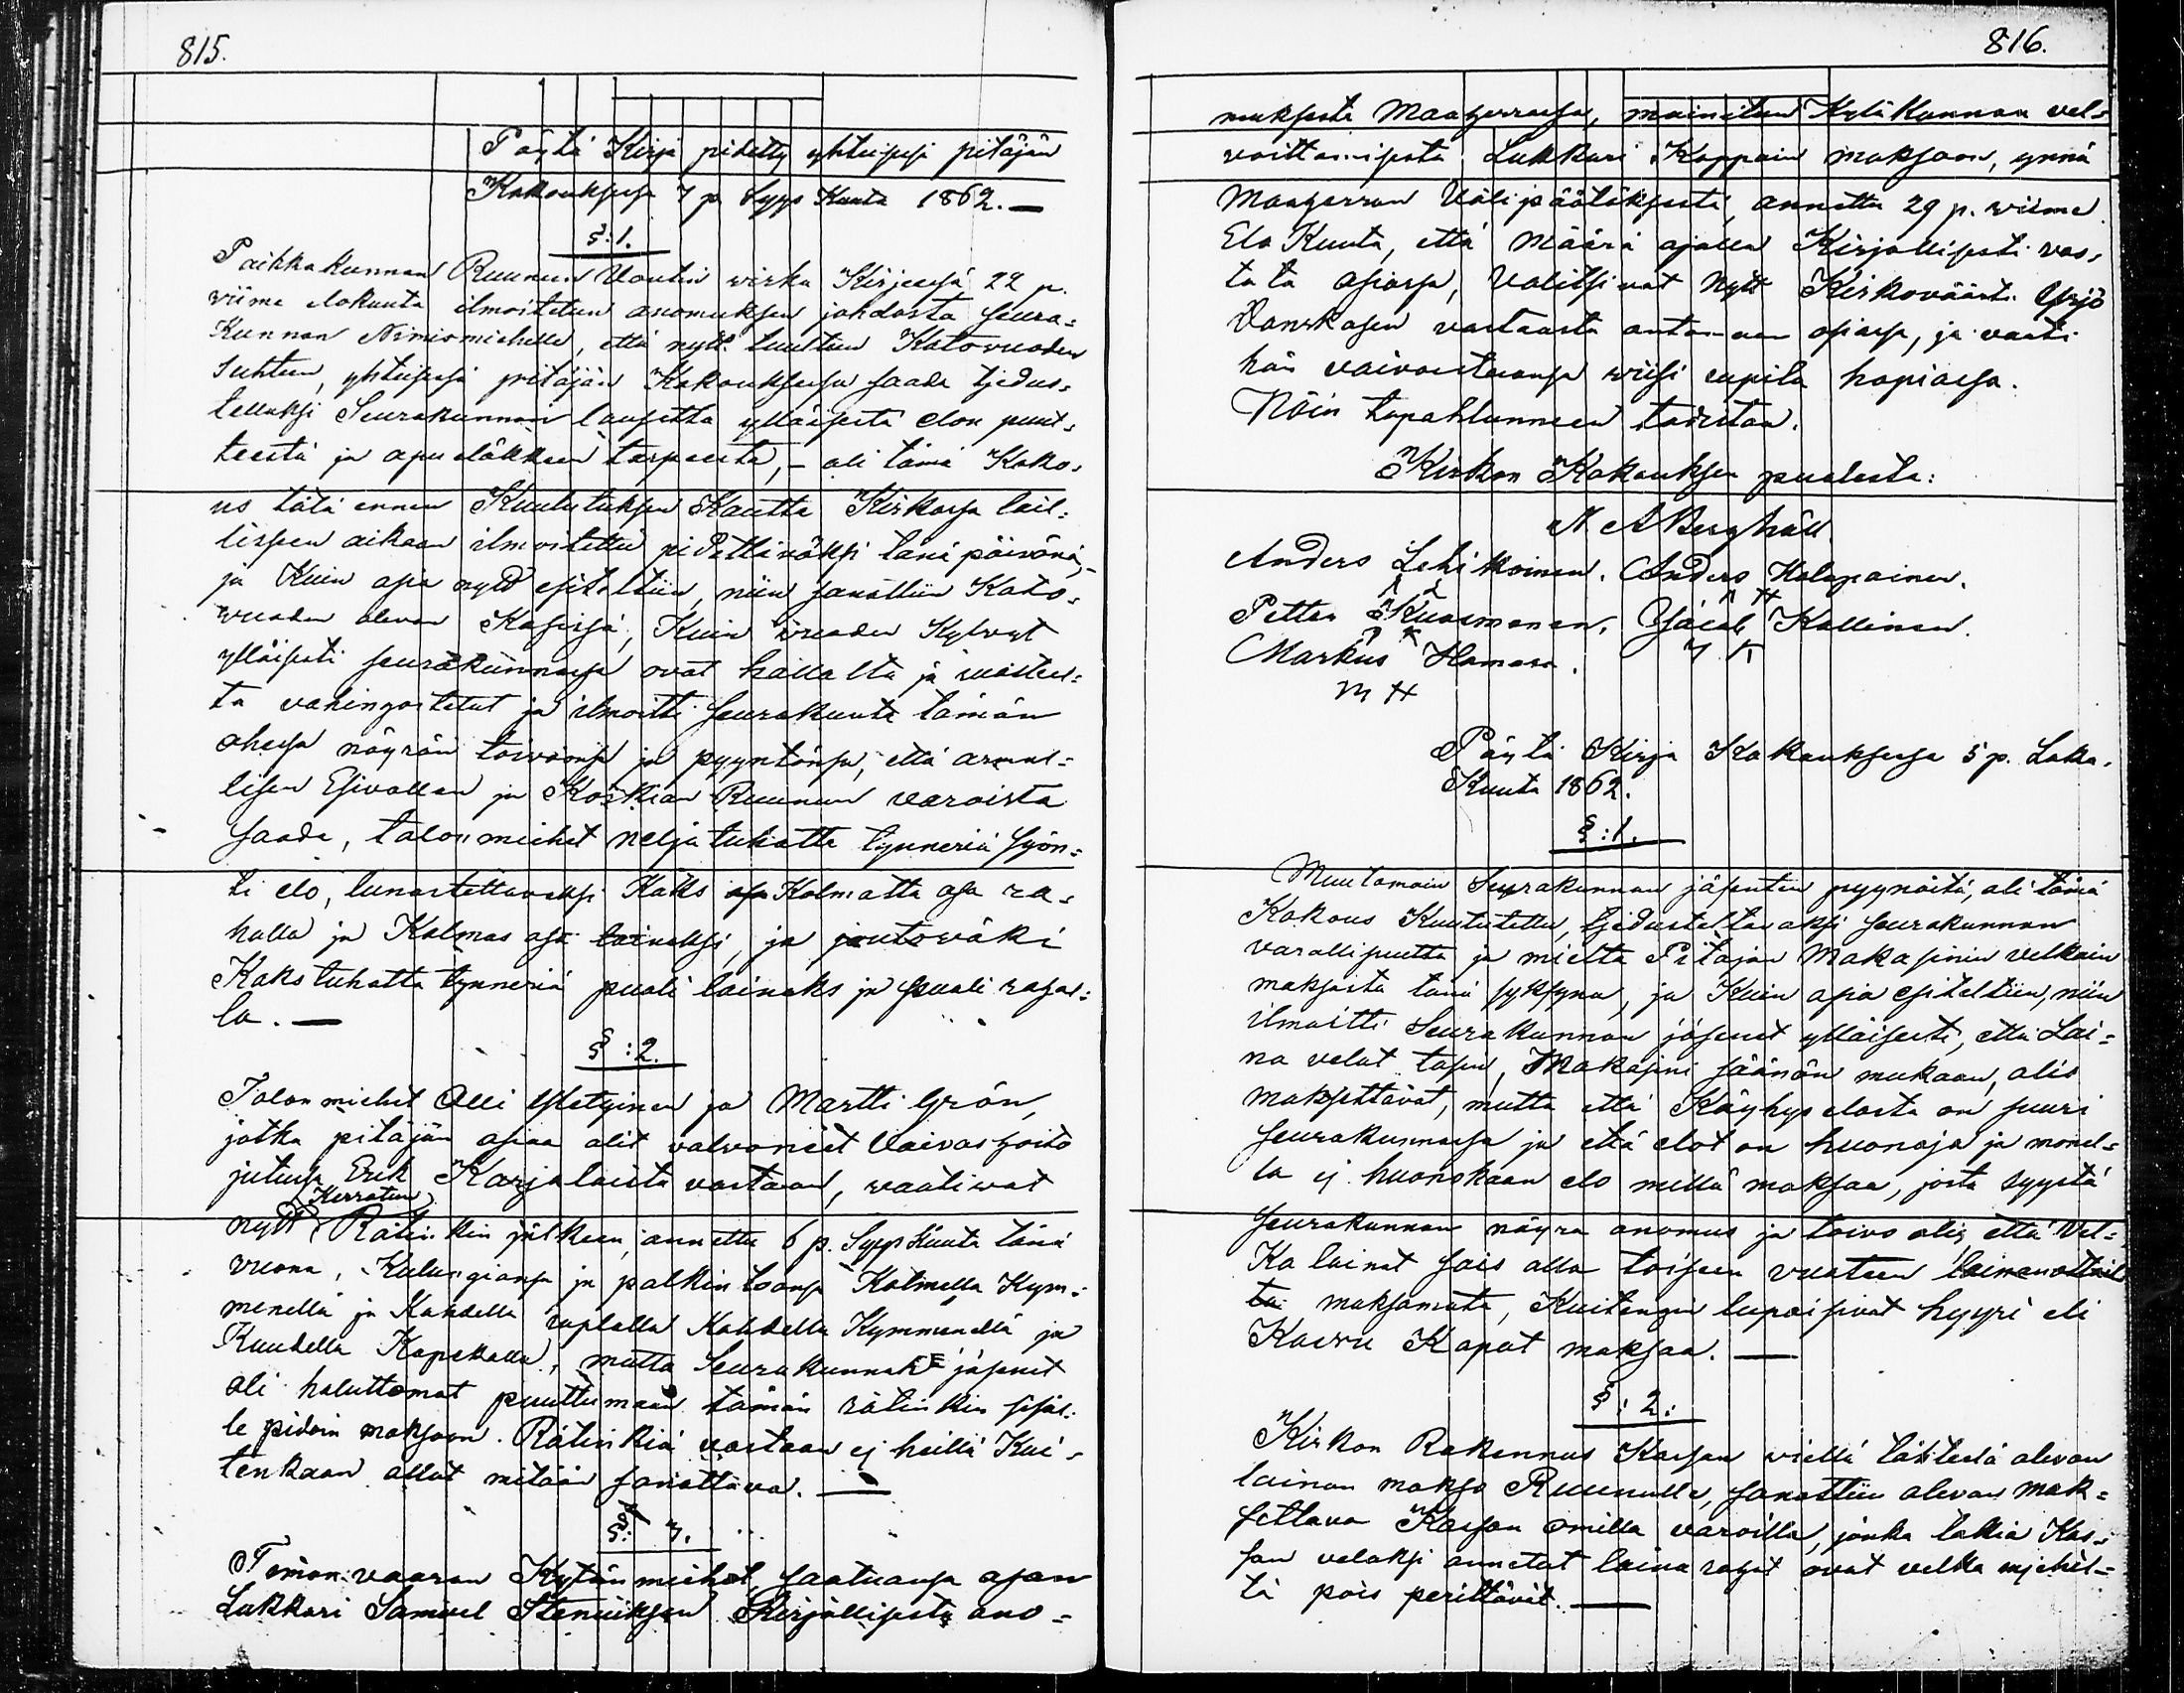 815.
Pöytä Kirja pidetty yhteisesä pitäjän
Kokouksesa 7 p. Syys Kuuta 1862. —
§:1.
Paikkakunnan Ruunun Voutin wirka Kirjeesä 22 p.
viime elokuuta ilmoitetun anomuksen johdosta seura=
Kunnan Nimismiehelle, että nytt tuultun Katovuoden
Suhteen, yhteisesä pitäjän Kokouksesa saada tjedus=
telluksi Seurakunnan lausetta ylläisestä elon puut=
teestä ja apu eläkkeen tarpeesta, – oli tämä Koko=
us tätä ennen Kuulutuksen Kautta Kirkosa lail=
lisseen aikaan ilmoitettu pidettäväksi tänäpäivänä, –
ja Kuin asia nytt esiteltiin, niin sanottiin Kato=
vuoden olevan Käsisä, Kuin vuoden Kylvyt
ylläisesti seurakunnasa ovat hallalta ja
ta vahingoitetut ja ilmoitti seurakunta tämän
ohesa nöyrän toivonsa ja pyyntönsä, että armol=
lisen Esivallan ja Korkian Ruunun varoista
saada, talon miehet neljä tuhatta tynneriä syön=
ti elo, lunastettavaksi Kaksi asa Kolmatta osa ra=
halla ja Kolmas osa lainaksi, ja joutoväki
Kaks tuhatta tynneriä puoli lainaks ja puoli rahal=
la. —
§:2.
Talon miehet Olli Yletyinen ja Martti Grön,
jotka pitäjän asiaa olit valvoneet Vaivashoito
jutusa Erik Karjalaista vastaan, vaativat
(Kerratun)
nytt Rätinkin jälkeen, annettu 6 p. Syys Kuuta tänä
vuona, Kulungiansa ja palkintoansa Kolmella Kym=
menellä ja Kahdella ruplalla Kahdella Kymmenellä ja
Kuudella Kopekalla, mutta Seurakunnan jäsenet
oli haluttomat puuttumaan tämän rätinkin sisäl=
le pidon maksoon. Rätinkiä vastaan ej heillä Kui=
tenkaan ollut mitään sanottava. —
§: 3.
Timonvaaran Kylän miehet, saatuansa asan
Lukkari Samuel Steniuksen Kirjallisesta ano=
816.
muksesta Maaherrasa, mainitun Kyläkunnan vel=
voittamisesta Lukkari Kappain maksoon, ynnä
Maaherran Välipäätöksesti, annettu 29 p. wiime
Elo Kuuta, että määrä ajalla Kirjallisesti vas=
tata asiasa, Valitsivat nytt Kirkoväärti Yrjö
Vanskasen vastausta antamaan asiasa, ja vaati
hän vaivastansa wiisi rupila hopiasa.
Näin tapahtunneen todistaa.
Kirkon Kokouksen puolesta:
N. A Berghäll
Anders Lehikoinen. Anders Holopainen.
A L A H
Petter Kuosmanen. Jacob Kallinen.
P K J K
Markus Hamara.
M H
Pöytä Kirja Kokouksesa 5 p. Loka.
Kuuta 1862.
§:1.
Muutamain Seurakunnan jäsenten pyynöstä, oli tämä
Kokous Kuulutettu, tjedusteltavaksi seurakunnan
varallisuutta ja mieltä Pitäjän Makasinin velkain
maksosta tänä syksynä, ja Kuin asia esiteltiin, niin
ilmoitti Seurakunnan jäsenet ylläisesti, että Lai=
na velat tosin, Makasini säänön mukaan, olis
maksettavat, mutta että Käyhyys elosta on suuri
seurakunnasa ja että elot on huonoja ja monel=
la ej huonokaan elo millä maksaa, josta syystä
seurakunnan nöyrä anomus ja toivo olis, että Vel=
Ka lainat sais olla toiseen vuoteen lainanottoil
ta maksamata, Kuitengin lupaisivat hyyri eli
Kasvu Kapat maksaa. —
§:2:
Kirkon Rakennus Kassan viellä tähteesä olevan
lainan makso Ruunulle, sanottiin olevan mak=
settava Kassan omilla varoilla, jonka takia Kas=
san velaksi annetut laina rahat ovat velka mjehil=
tä pois perittävät. —